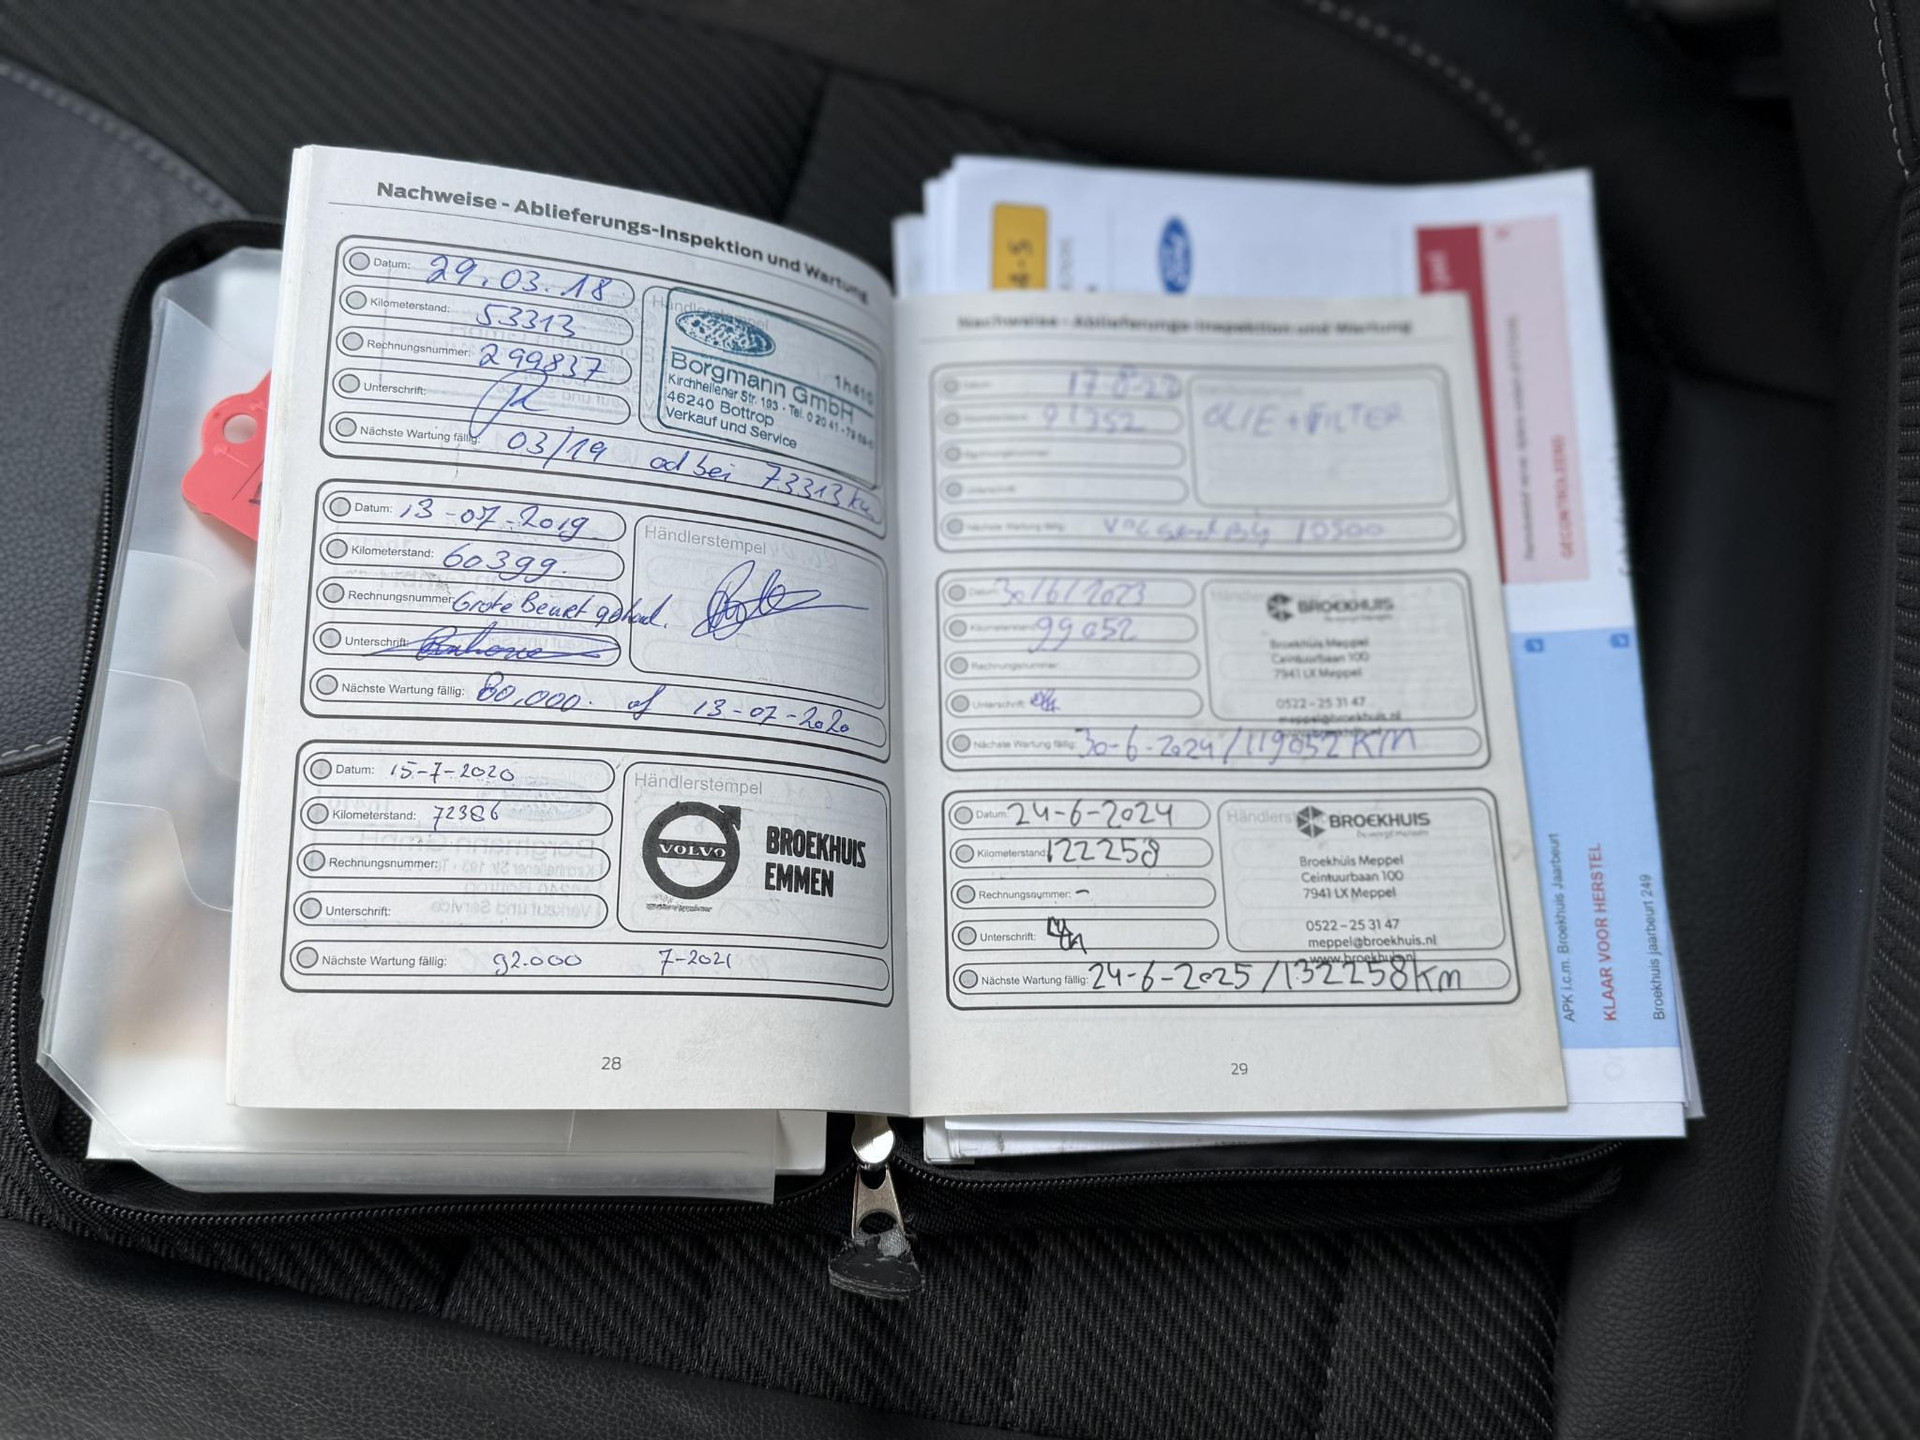 Nachweise - Ablieferungs-Inspektion und Wartung
Datum: 29.03.18
Kilometerstand: 53313
Rechnungsnummer: 299837
Unterschrift:
Nächste Wartung fällig: 03/19 od bei 73313 km
Händlerstempel
Ford
1h416
Borgmann GmbH
Kirchhellener Str. 193 - Tel. 0 20 41 -
46240 Bottrop
Verkauf und Service
Datum: 13-07-2019
Kilometerstand: 60399.
Rechnungsnummer: Grote Beurt gehad.
Unterschrift:
Nächste Wartung fällig: 80.000. of 13-07-2020
Händlerstempel
Datum: 15-7-2020
Kilometerstand: 72386
Rechnungsnummer:
Unterschrift:
Nächste Wartung fällig: 92.000 7-2021
Händlerstempel
VOLVO
BROEKHUIS
EMMEN
28
Nachweise - Ablieferungs-Inspektion und Wartung
Datum:
Rechnungsnummer:
Unterschrift:
Nächste Wartung fällig:
OLIE + FILTER
Datum: 30/6/2023
Kilometerstand: 99052
Rechnungsnummer:
Unterschrift:
Nächste Wartung fällig: 30-6-2024/119052 KM
BROEKHUIS
Broekhuis Meppel
Ceintuurbaan 100
7941 LX Meppel
0522 - 25 31 47
meppel@broekhuis.nl
Datum: 24-6-2024
Kilometerstand: 122258
Rechnungsnummer: -
Unterschrift:
Nächste Wartung fällig: 24-6-2025 /132258km
BROEKHUIS
Broekhuis Meppel
Ceintuurbaan 100
7941 LX Meppel
0522 - 25 31 47
meppel@broekhuis.nl
www.broekhuis.nl
29
Ford
GECONTROLEERD
APK i.c.m. Broekhuis Jaarbeurt
KLAAR VOOR HERSTEL
Broekhuis jaarbeurt 249